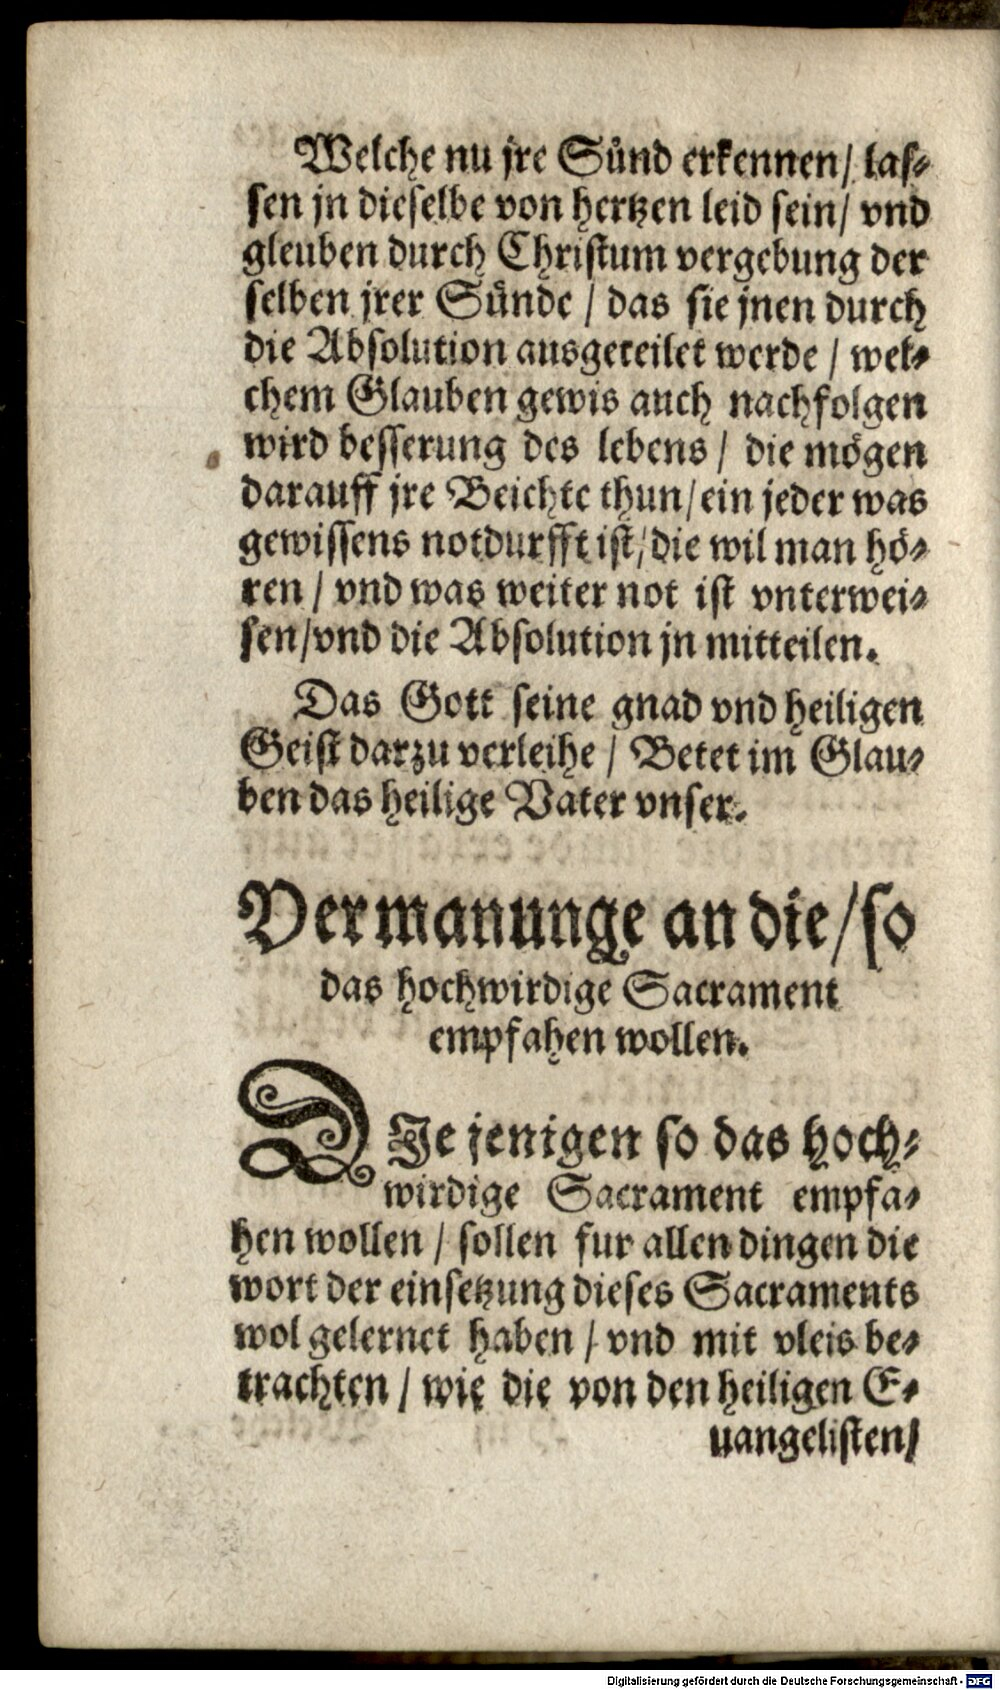 Welche nu jre Sünd erkennen/ las⸗
sen jn dieselbe von hertzen leid sein/ vnd
gleuben durch Christum vergebung der
selben jrer Sünde / das sie jnen durch
die Absolution ausgeteilet werde / wel⸗
chem Glauben gewis auch nachfolgen
wird besserung des lebens / die mögen
darauff jre Beichte thun/ ein jeder was
gewissens notdurfft ist/ die wil man hö⸗
ren / vnd was weiter not ist vnterwei⸗
sen/vnd die Absolution jn mitteilen.
Das Gott seine gnad vnd heiligen
Geist darzu verleihe / Betet im Glau⸗
ben das heilige Vater vnser.
Vermanunge an die/so
das hochwirdige Sacrament
empfahen wollen.
DIe jenigen so das hoch⸗
wirdige Sacrament empfa⸗
hen wollen / sollen fur allen dingen die
wort der einsetzung dieses Sacraments
wol gelernet haben / vnd mit vleis be⸗
trachten / wie die von den heiligen E⸗
uangelisten/
Digitalisierung gefördert durch die Deutsche Forschungsgemeinschaft - DFG